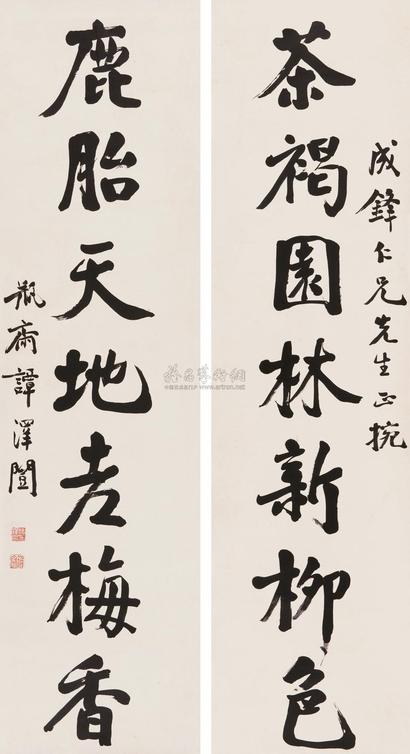 成鋒仁兄先生正捥
茶褐園林新柳色
鹿胎天地老梅香
瓶齋譚澤闓
www.artron.net